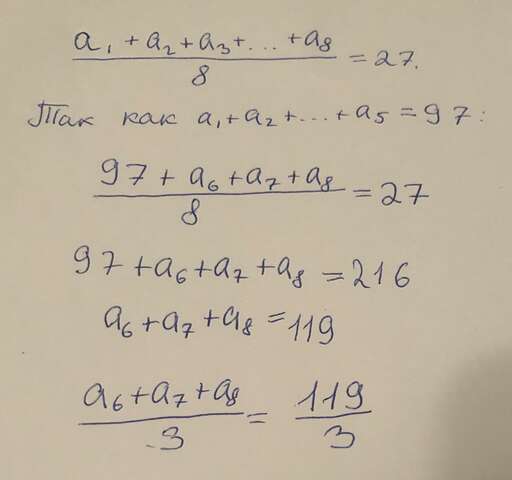 (a₁ + a₂ + a₃ + ... + a₈)/8 = 27.
Так как a₁ + a₂ + ... + a₅ = 97:
(97 + a₆ + a₇ + a₈)/8 = 27
97 + a₆ + a₇ + a₈ = 216
a₆ + a₇ + a₈ = 119
(a₆ + a₇ + a₈)/3 = 119/3